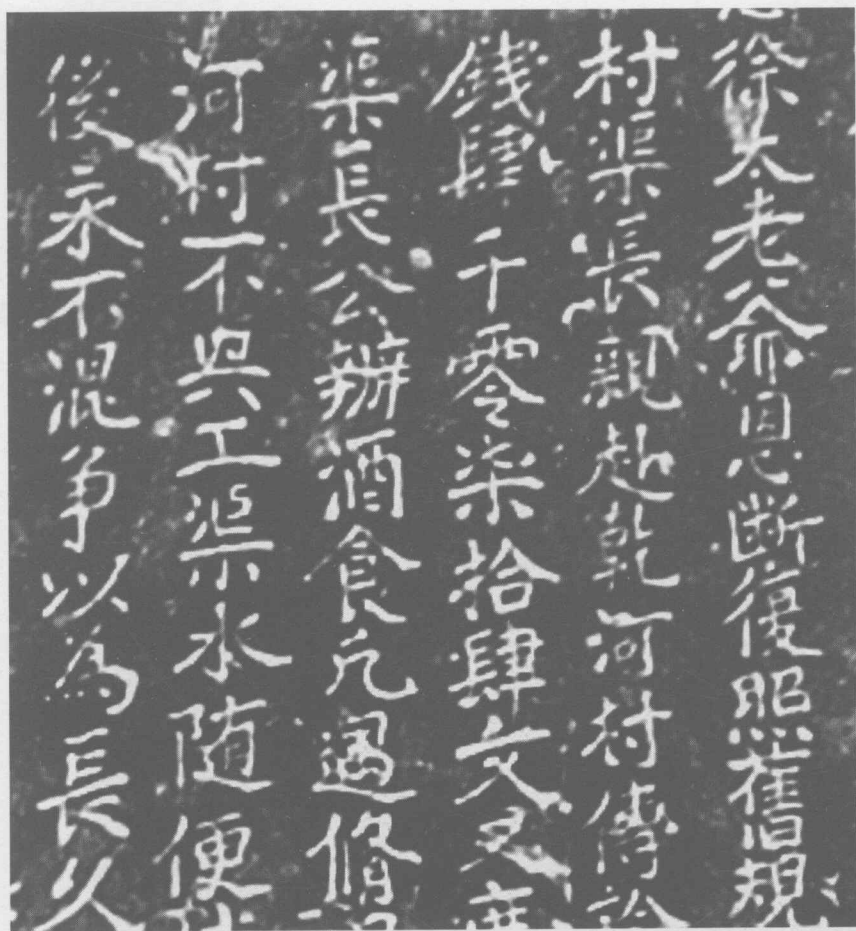 徐太老爺恩斷復照舊規
村渠長親赴乾河村傳諭
錢肆千零柒拾肆文又
渠長公辦酒食凡遇脩
河村不與工渠水随便
後永不混争以為長久